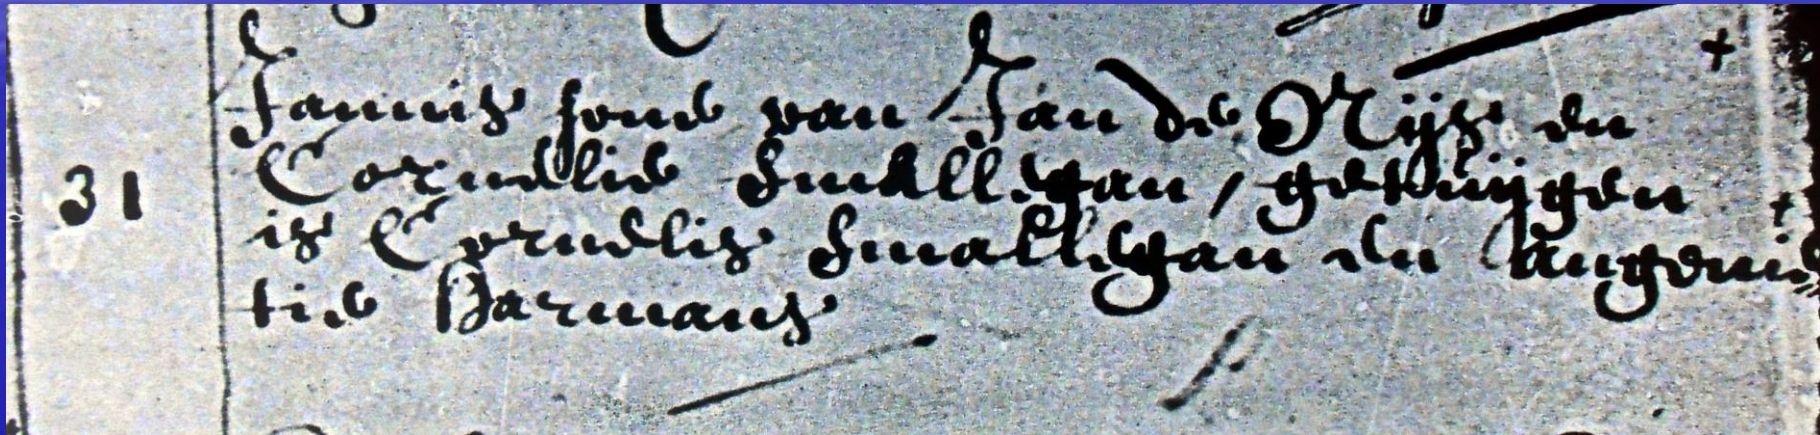 31
Jannis sone van Jan de Rijse en
Cornelie Smallegan, getuijgen
is Cornelis Smallegan en
tie Harmans